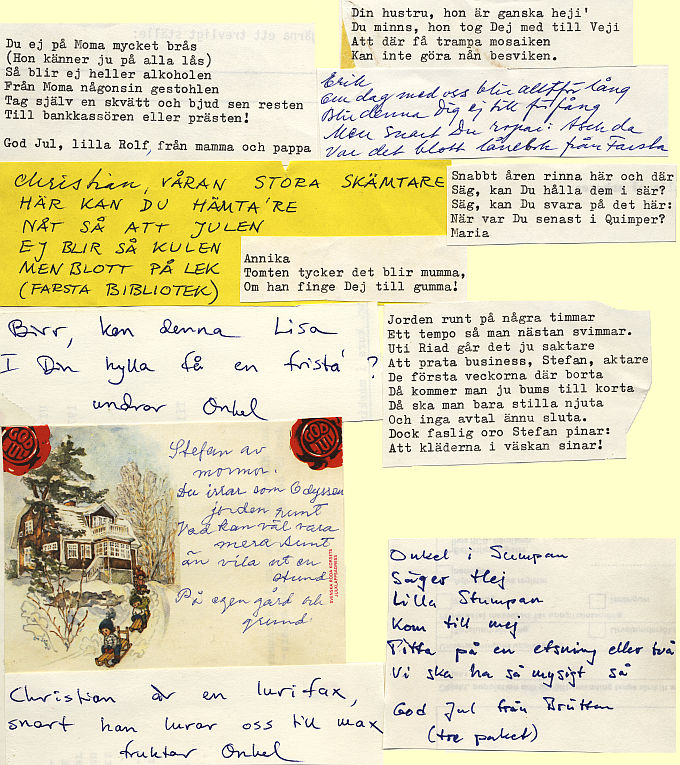 Du ej på Moma mycket brås
(Hon känner ju på alla lås)
Så blir ej heller alkoholen
Från Moma någonsin gestohlen
Tag själv en skvätt och bjud sen resten
Till bankkassören eller prästen!
God Jul, lilla Rolf, från mamma och pappa
Din hustru, hon är ganska heji'
Du minns, hon tog Dej med till Veji
Att där få trampa mosaiken
Kan inte göra nån besviken.
Erik
Om dag med oss blir alltför lång
Blir denna Dig ej till förfång
Men snart Du ropar: Asch da
Var det blott lånebok från Farsta
Christian, VÅRAN STORA SKÄMTARE
HÄR KAN DU HÄMTA'RE
NÅT SÅ ATT JULEN
EJ BLIR SÅ KULEN
MEN BLOTT PÅ LEK
(FARSTA BIBLIOTEK)
Snabbt åren rinna här och där
Säg, kan Du hålla dem i sär?
Säg, kan Du svara på det här:
När var Du senast i Quimper?
Maria
Annika
Tomten tycker det blir mumma,
Om han finge Dej till gumma!
Birr, kan denna Lisa
I Din hylla få en frista'?
undrar Onkel
Jorden runt på några timmar
Ett tempo så man nästan svimmar.
Uti Riad går det ju saktare
Att prata business, Stefan, aktare
De första veckorna där borta
Då kommer man ju bums till korta
Då ska man bara stilla njuta
Och inga avtal ännu sluta.
Dock faslig oro Stefan pinar:
Att kläderna i väskan sinar!
GOD JUL
GOD JUL
Stefan av
mormor.
Du irrar som Odyssen
jorden runt
Vad kan väl vara
mera sunt
än vila ut en
stund
På egen gård och
grund.
SVENSKA RÖDA KORSETS
Onkel i Sumpan
Säger Hej
Lilla Stumpan
Kom till mej
Titta på en etsning eller två
Vi ska ha så mysigt så
God Jul från Britten
(tre paket)
Christian är en lurifax,
snart han lurar oss till max
fruktar Onkel